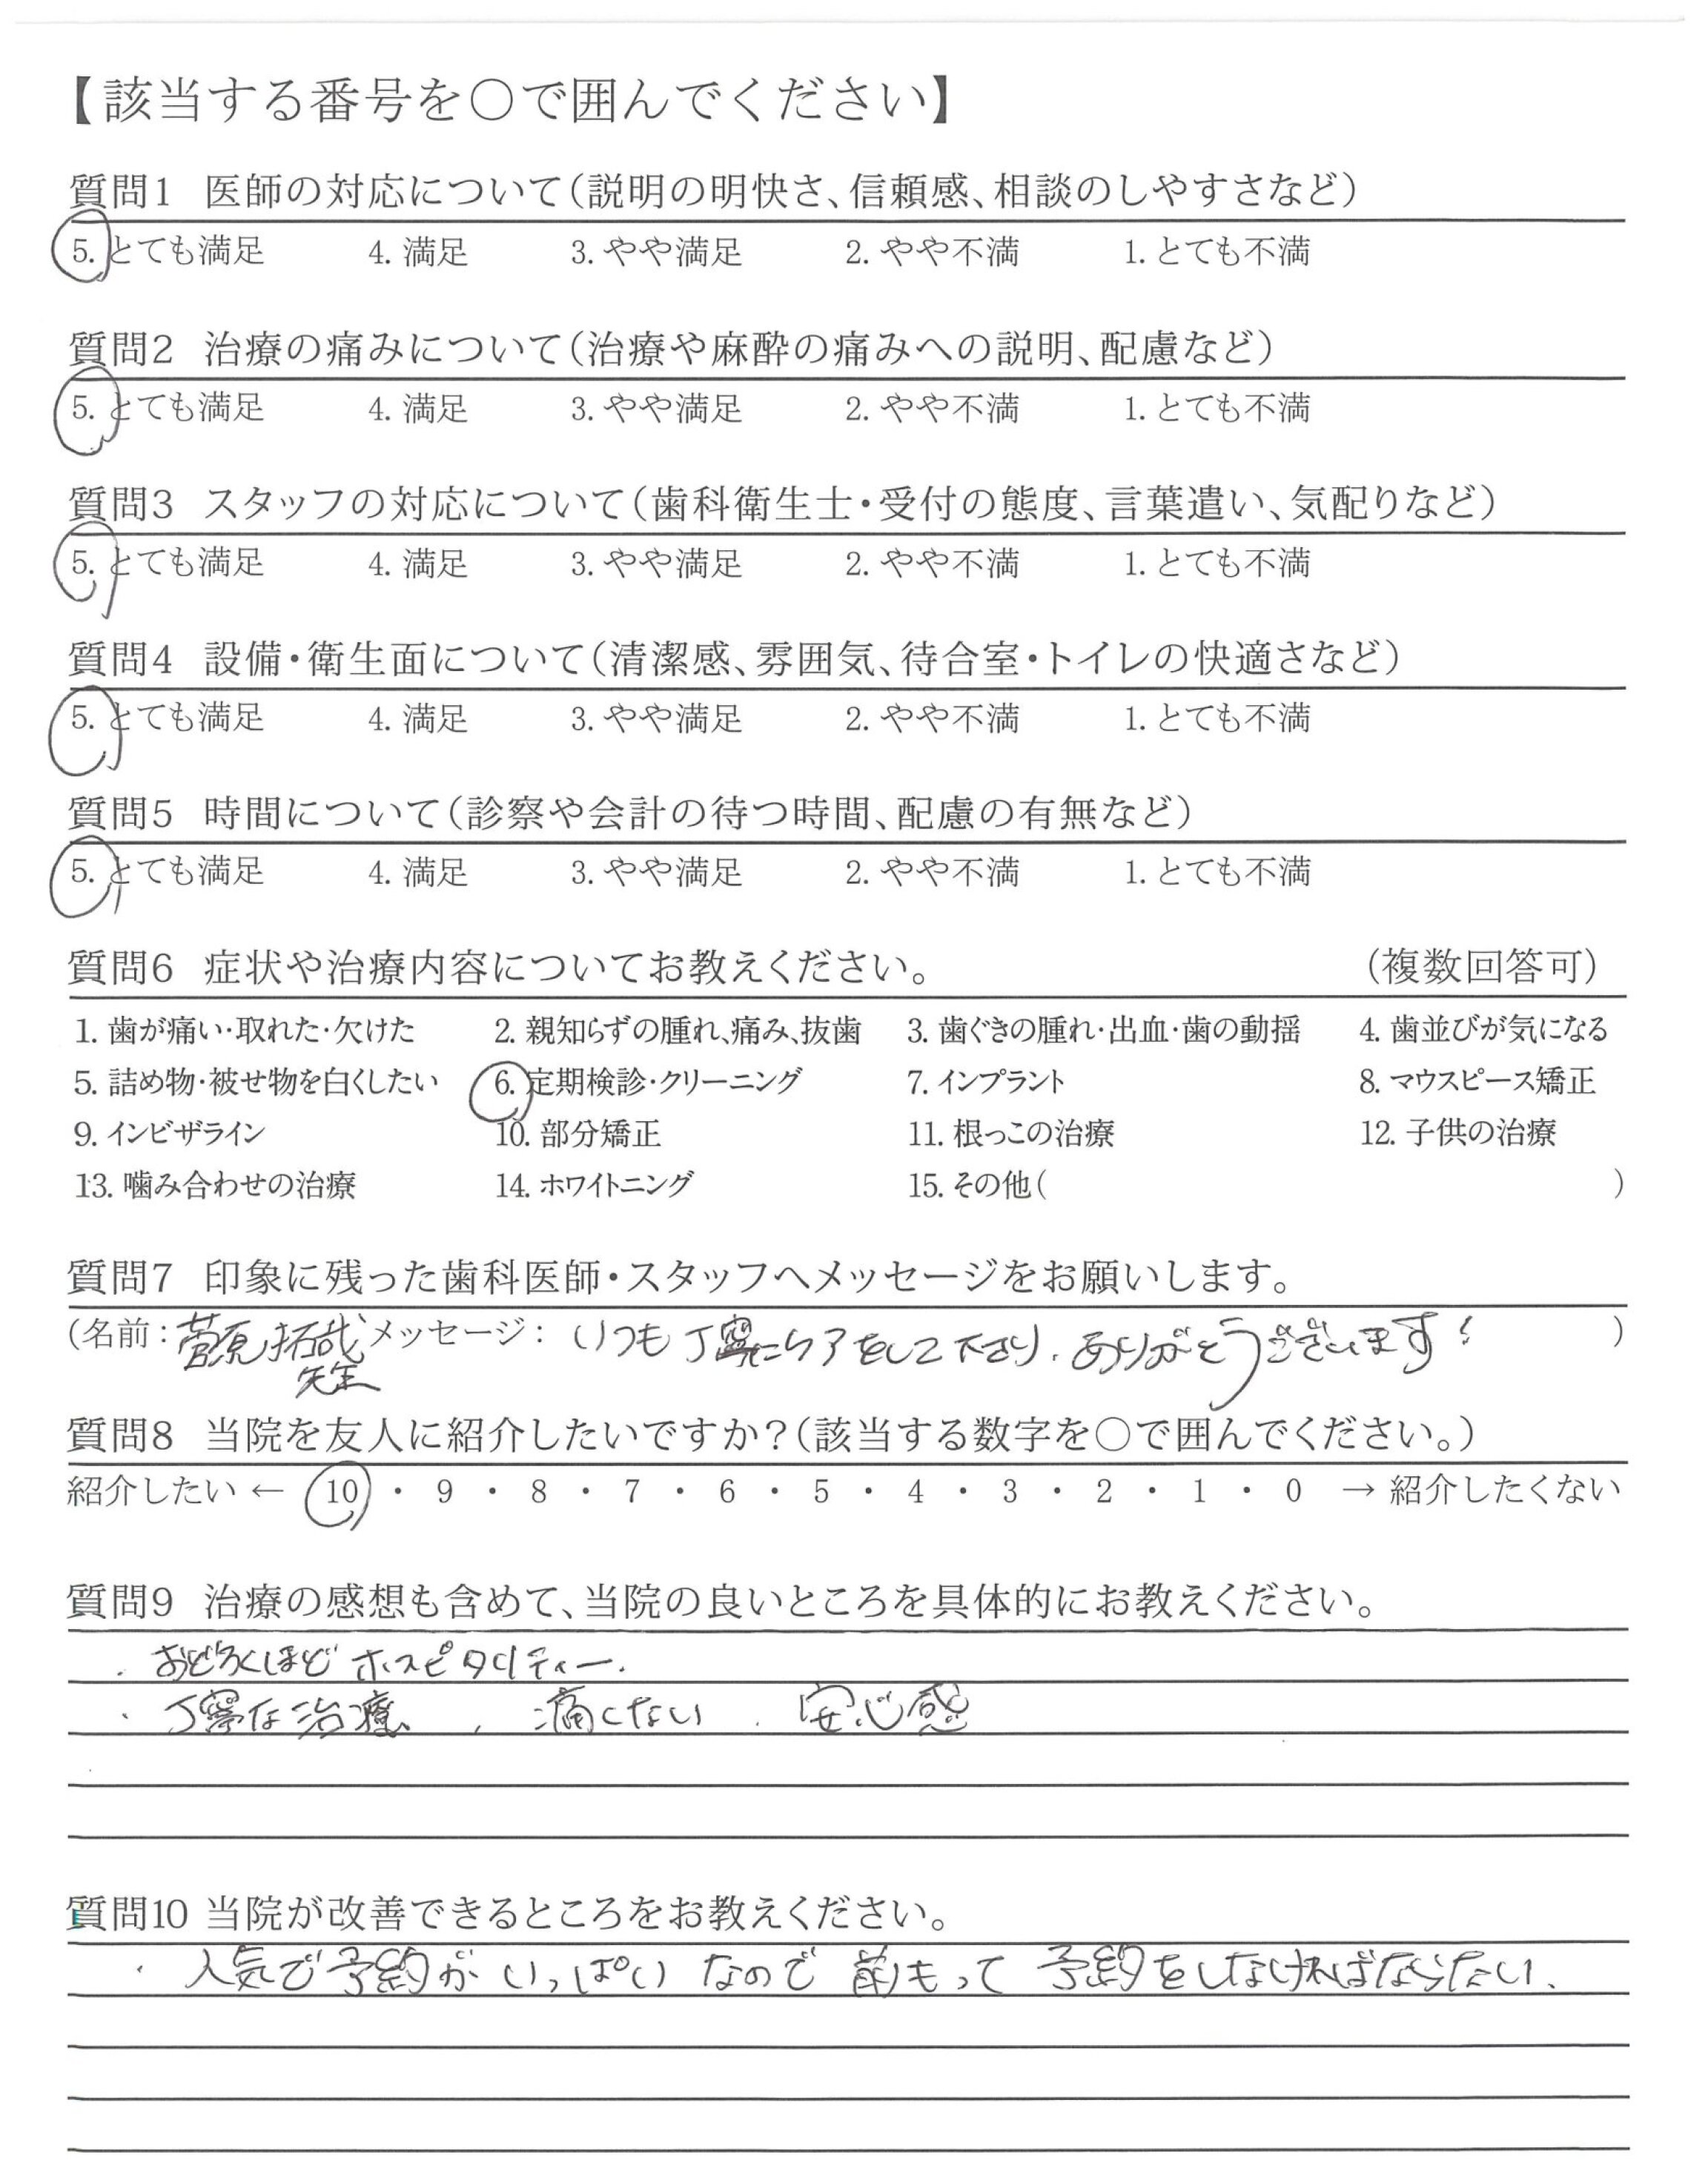 【該当する番号を○で囲んでください】
質問1 医師の対応について(説明の明快さ、信頼感、相談のしやすさなど)
5. とても満足 4. 満足 3. やや満足 2. やや不満 1. とても不満
質問2 治療の痛みについて(治療や麻酔の痛みへの説明、配慮など)
5. とても満足 4. 満足 3. やや満足 2. やや不満 1. とても不満
質問3 スタッフの対応について(歯科衛生士・受付の態度、言葉遣い、気配りなど)
5. とても満足 4. 満足 3. やや満足 2. やや不満 1. とても不満
質問4 設備・衛生面について(清潔感、雰囲気、待合室・トイレの快適さなど)
5. とても満足 4. 満足 3. やや満足 2. やや不満 1. とても不満
質問5 時間について(診察や会計の待つ時間、配慮の有無など)
5. とても満足 4. 満足 3. やや満足 2. やや不満 1. とても不満
質問6 症状や治療内容についてお教えください。 (複数回答可)
1. 歯が痛い・取れた・欠けた 2. 親知らずの腫れ、痛み、抜歯 3. 歯ぐきの腫れ・出血・歯の動揺 4. 歯並びが気になる
5. 詰め物・被せ物を白くしたい 6. 定期検診・クリーニング 7. インプラント 8. マウスピース矯正
9. インビザライン 10. 部分矯正 11. 根っこの治療 12. 子供の治療
13. 噛み合わせの治療 14. ホワイトニング 15. その他( )
質問7 印象に残った歯科医師・スタッフへメッセージをお願いします。
(名前: 菅原拓哉先生 メッセージ: いつも丁寧にケアをして下さり、ありがとうございます! )
質問8 当院を友人に紹介したいですか?(該当する数字を○で囲んでください。)
紹介したい ← 10 ・ 9 ・ 8 ・ 7 ・ 6 ・ 5 ・ 4 ・ 3 ・ 2 ・ 1 ・ 0 → 紹介したくない
質問9 治療の感想も含めて、当院の良いところを具体的にお教えください。
・おどろくほどホスピタリティー.
・丁寧な治療、痛くない、安心感
質問10 当院が改善できるところをお教えください。
・人気で予約がいっぱいなので前もって予約をしなければならない.